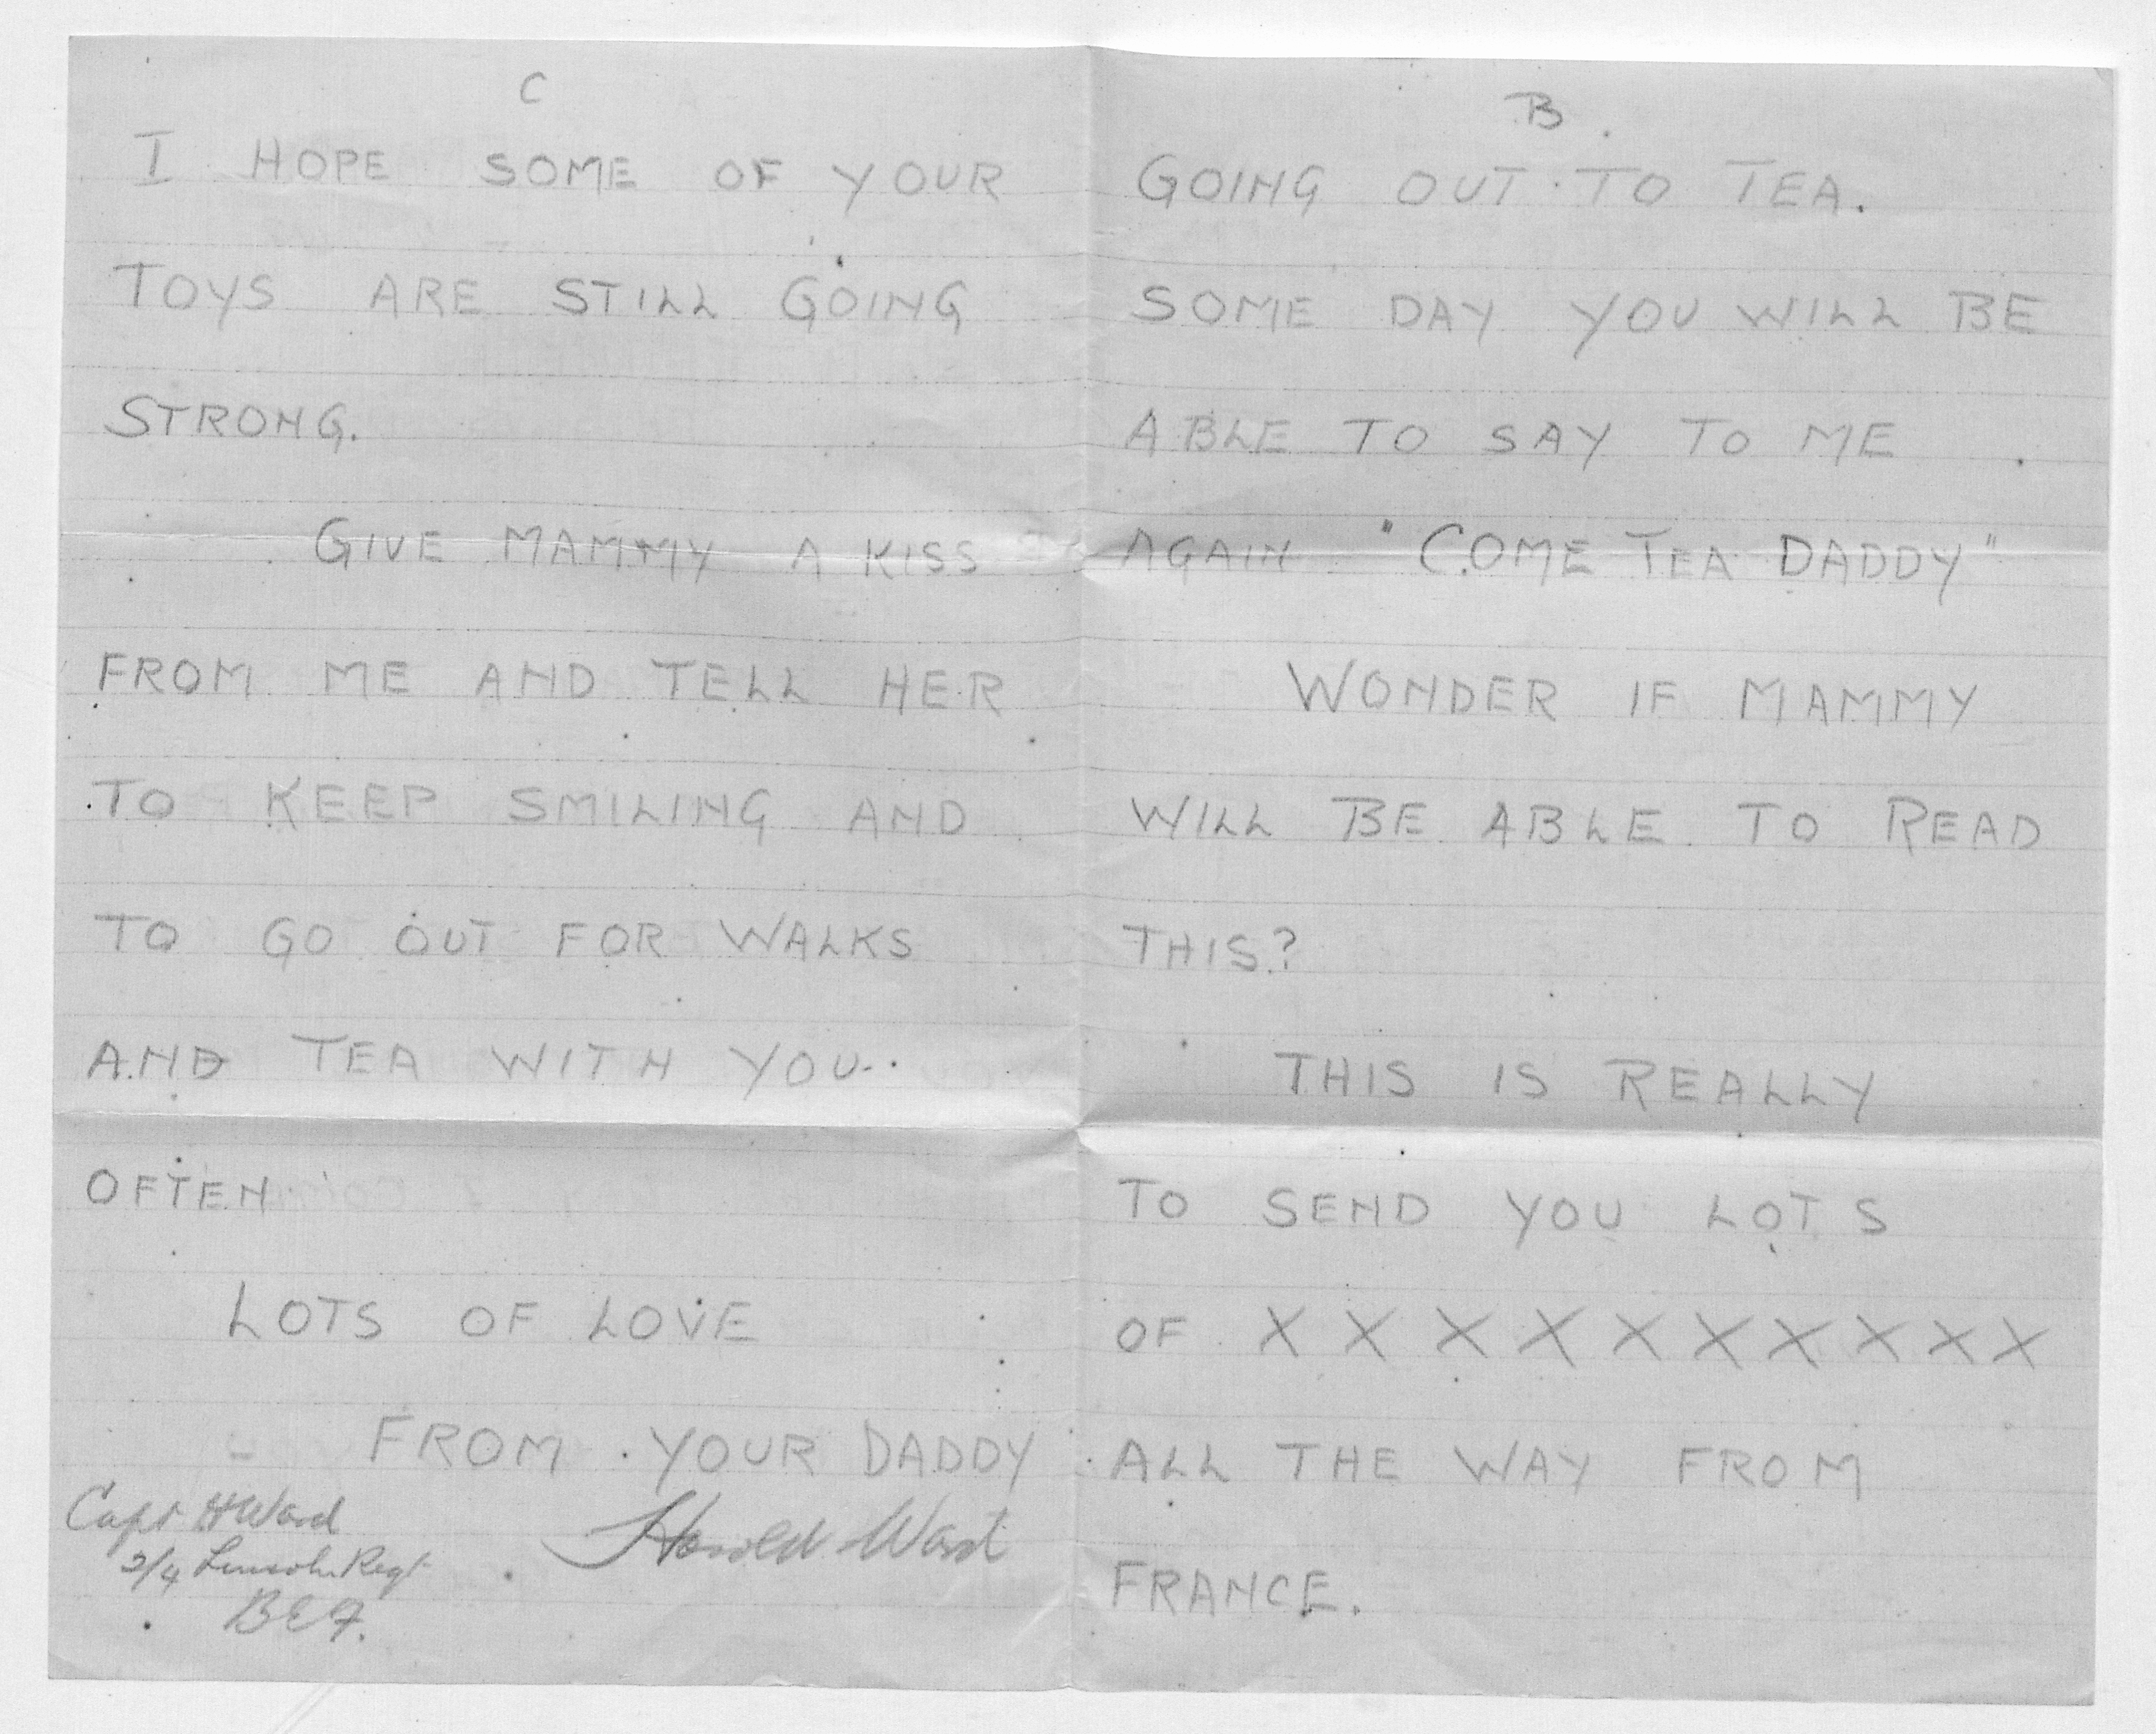 C
I HOPE SOME OF YOUR
TOYS ARE STILL GOING
STRONG.
GIVE MAMMY A KISS
FROM ME AND TELL HER
TO KEEP SMILING AND
TO GO OUT FOR WALKS
AND TEA WITH YOU.
OFTEN
LOTS OF LOVE
FROM YOUR DADDY
Harold Ward
Capt H Ward
2/4 Lincoln Regt
BEF.
B.
GOING OUT TO TEA.
SOME DAY YOU WILL BE
ABLE TO SAY TO ME
AGAIN "COME TEA DADDY"
WONDER IF MAMMY
WILL BE ABLE TO READ
THIS?
THIS IS REALLY
TO SEND YOU LOTS
OF X X X X X X X X X X
ALL THE WAY FROM
FRANCE.